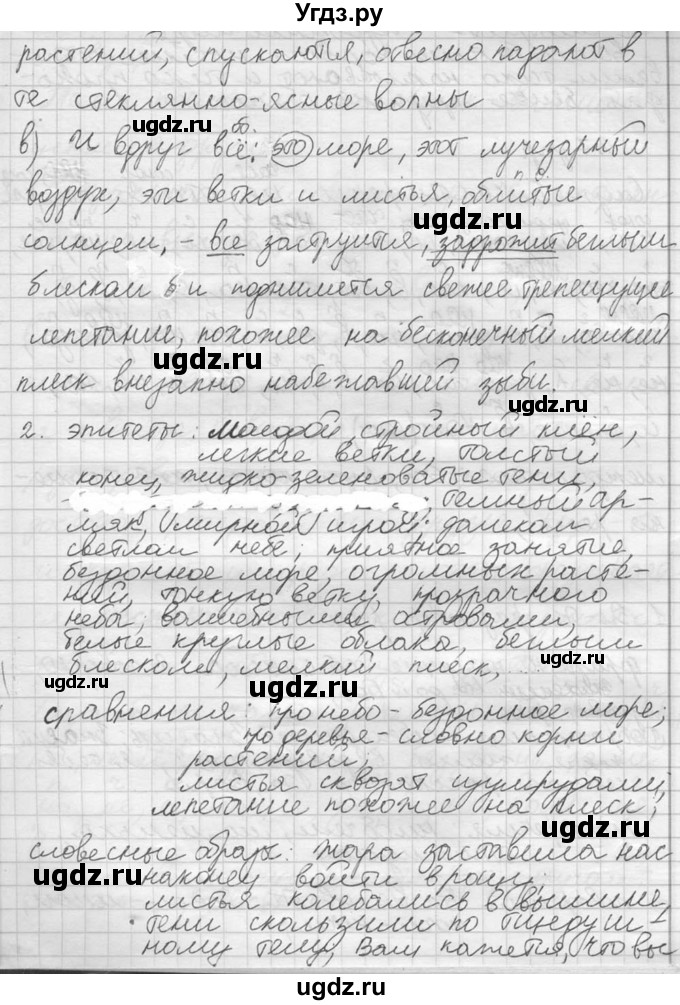 Угдз.ру
растений, спускаются, отвесно падают в
те стеклянно-ясные волны
ugdz.ru
об.
в) И вдруг всё: это море, этот лучезарный
воздух, эти ветки и листья, облитые
ugdz.ru ugdz.ru
солнцем, - все заструится, задрожит беглым
блеском и поднимется свежее трепещущее
лепетание, похожее на бесконечный мелкий
ugdz.ru
плеск внезапно набежавшей зыби.
ugdz.ru
2. эпитеты: молодой, стройный клён,
легкие ветки, толстый
конец, жидко-зеленоватые тени,
темный ар-
мяк, мирной игрой далекам
светлам небе; приятное занятие,
бездонное море, огромных расте-
ний, тонкую ветку, прозрачного
неба, волшебными островами,
белые круглые облака, беглым
блеском, мелкий плеск, ...
ugdz.ru ugdz.ru
сравнения: про небо - бездонное море;
про деревья - словно корни
растений;
листья сквозят изумрудами;
лепетание похожее на плеск;
ugdz.ru
словесные образы: жара заставила нас
ugdz.ru
наконец войти в рощу;
листья колебались в вышине,
тени скользили по тщедуш-
ному телу; Вам кажется, что вы
ugdz.ru ugdz.ru